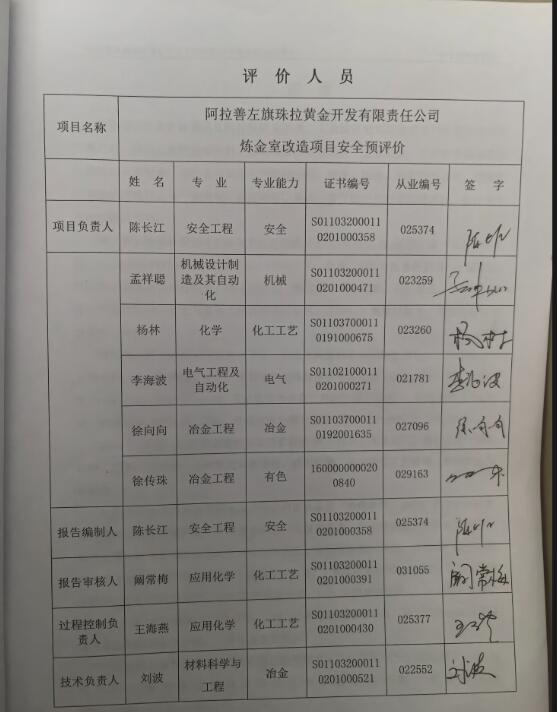 评 价 人 员
项目名称
阿拉善左旗珠拉黄金开发有限责任公司
炼金室改造项目安全预评价
姓 名 专 业 专业能力 证书编号 从业编号 签 字
项目负责人 陈长江 安全工程 安全 S011032000110201000358 025374 陈长江
孟祥聪 机械设计制造及其自动化 机械 S011032000110201000471 023259
杨林 化学 化工工艺 S011037000110191000675 023260 杨林
李海波 电气工程及自动化 电气 S011021000110201000271 021781 李海波
徐向向 冶金工程 冶金 S011037000110192001635 027096 徐向向
徐传珠 冶金工程 有色 1600000000200840 029163
报告编制人 陈长江 安全工程 安全 S011032000110201000358 025374 陈长江
报告审核人 阚常梅 应用化学 化工工艺 S011032000110201000391 031055 阚常梅
过程控制负责人 王海燕 应用化学 化工工艺 S011032000110201000430 025377
技术负责人 刘波 材料科学与工程 冶金 S011032000110201000521 022552 刘波